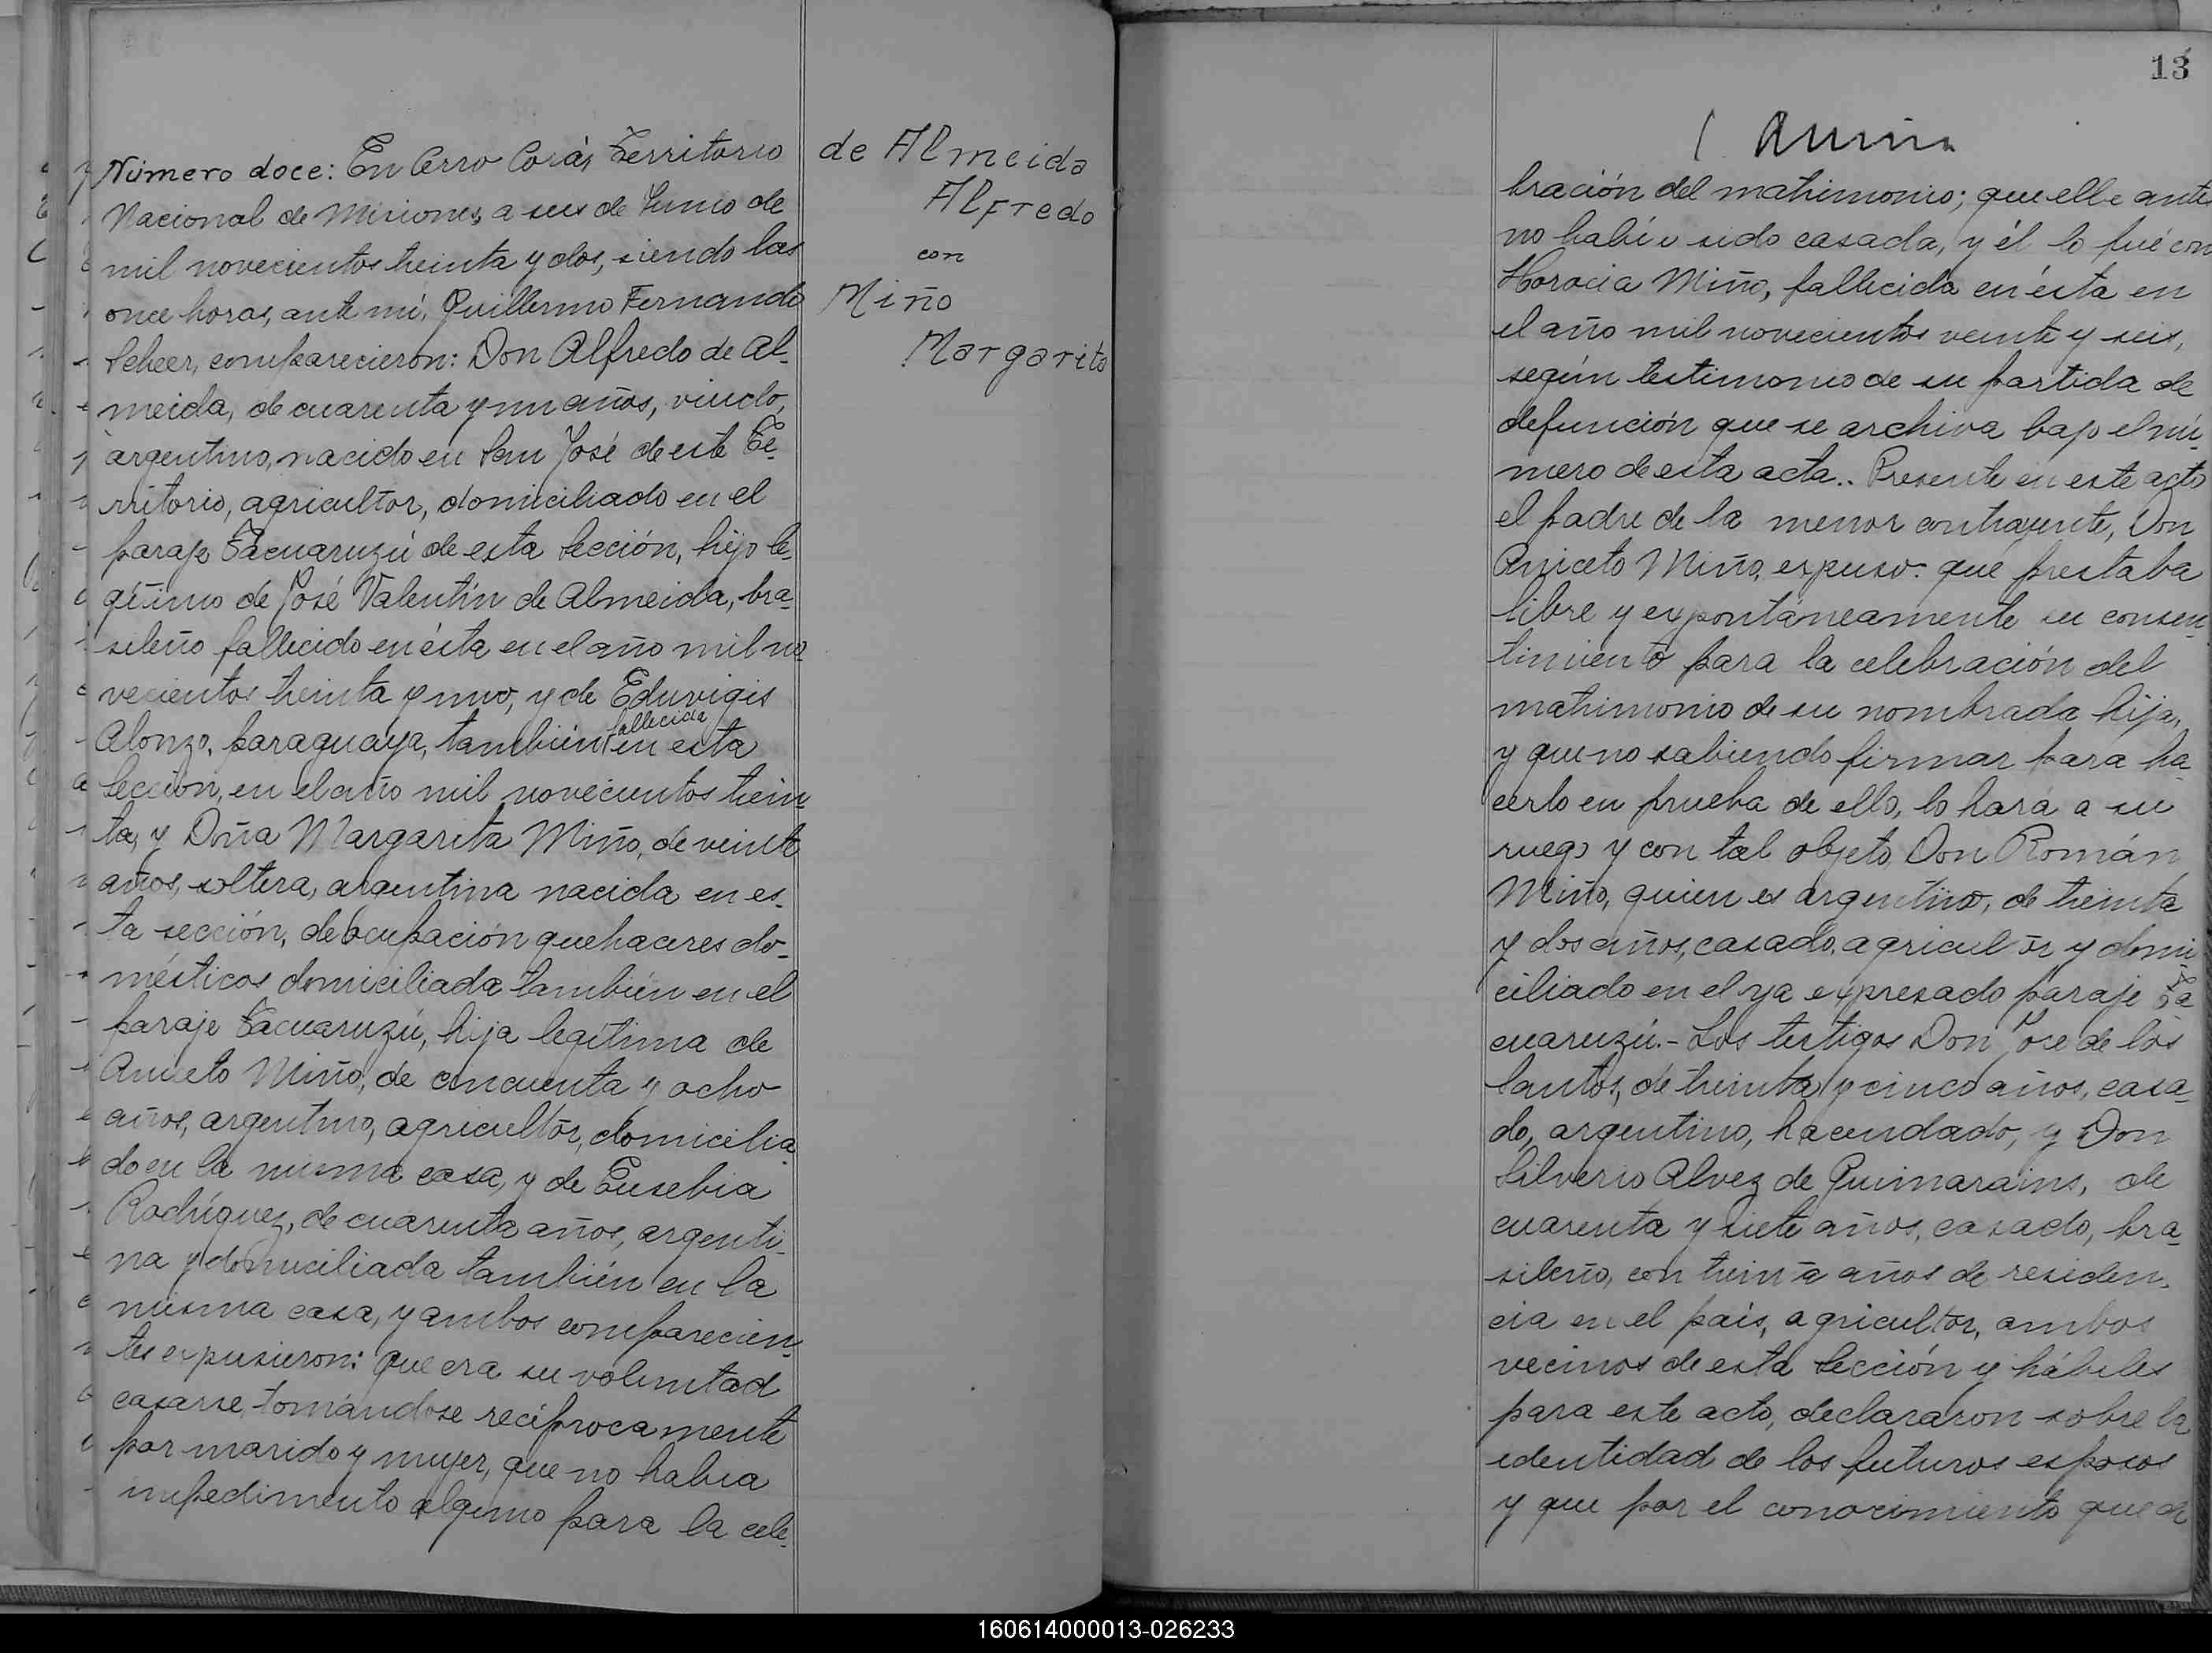 Número doce: En Cerro Corá, Territorio
Nacional de Misiones, a seis de Junio de
mil novecientos treinta y dos, siendo las
once horas, ante mí, Guillermo Fernando
Scheer, comparecieron: Don Alfredo de Al-
meida, de cuarenta y un años, viudo,
argentino, nacido en San José de este Te-
rritorio, agricultor, domiciliado en el
paraje Tacuaruzú de esta Sección, hijo le-
gítimo de José Valentín de Almeida, bra-
sileño fallecido en ésta en el año mil no-
vecientos treinta y uno, y de Eduvigis
Alonzo, paraguaya, también fallecida en esta
Sección, en el año mil novecientos trein-
ta, y Doña Margarita Miño, de veinte
años, soltera, argentina nacida en es-
ta sección, de ocupación quehaceres do-
mésticos domiciliada también en el
paraje Tacuaruzú, hija legítima de
Aniceto Miño, de cincuenta y ocho
años, argentino, agricultor, domicilia-
do en la misma casa, y de Eusebia
Rodríguez, de cuarenta años, argenti-
na y domiciliada también en la
misma casa, y ambos comparecien-
tes expusieron: que era su voluntad
casarse tomándose recíprocamente
por marido y mujer, que no había
impedimento alguno para la cele-
de Almeida
Alfredo
con
Miño
Margarita
13
bración del matrimonio; que ella antes
no había sido casada, y él lo fué con
Horacia Miño, fallecida en ésta en
el año mil novecientos veinte y seis,
según testimonio de su partida de
defunción que se archiva bajo el nú-
mero de esta acta.. Presente en este acto
el padre de la menor contrayente, Don
Aniceto Miño, expuso: que prestaba
libre y expontáneamente su consen-
timiento para la celebración del
matrimonio de su nombrada hija,
y que no sabiendo firmar para ha-
cerlo en prueba de ello, lo hará a su
ruego y con tal objeto, Don Román
Miño, quien es argentino, de treinta
y dos años, casado, agricultor y domi-
ciliado en el ya expresado paraje Ta-
cuaruzú.- Los testigos Don José de los
Santos, de treinta y cinco años, casa-
do, argentino, hacendado, y Don
Silverio Alvez de Guimarains, de
cuarenta y siete años, casado, bra-
sileño, con treinta años de residen-
cia en el país, agricultor, ambos
vecinos de esta Sección y hábiles
para este acto, declararon sobre la
identidad de los futuros esposos
y que por el conocimiento que de
160614000013-026233